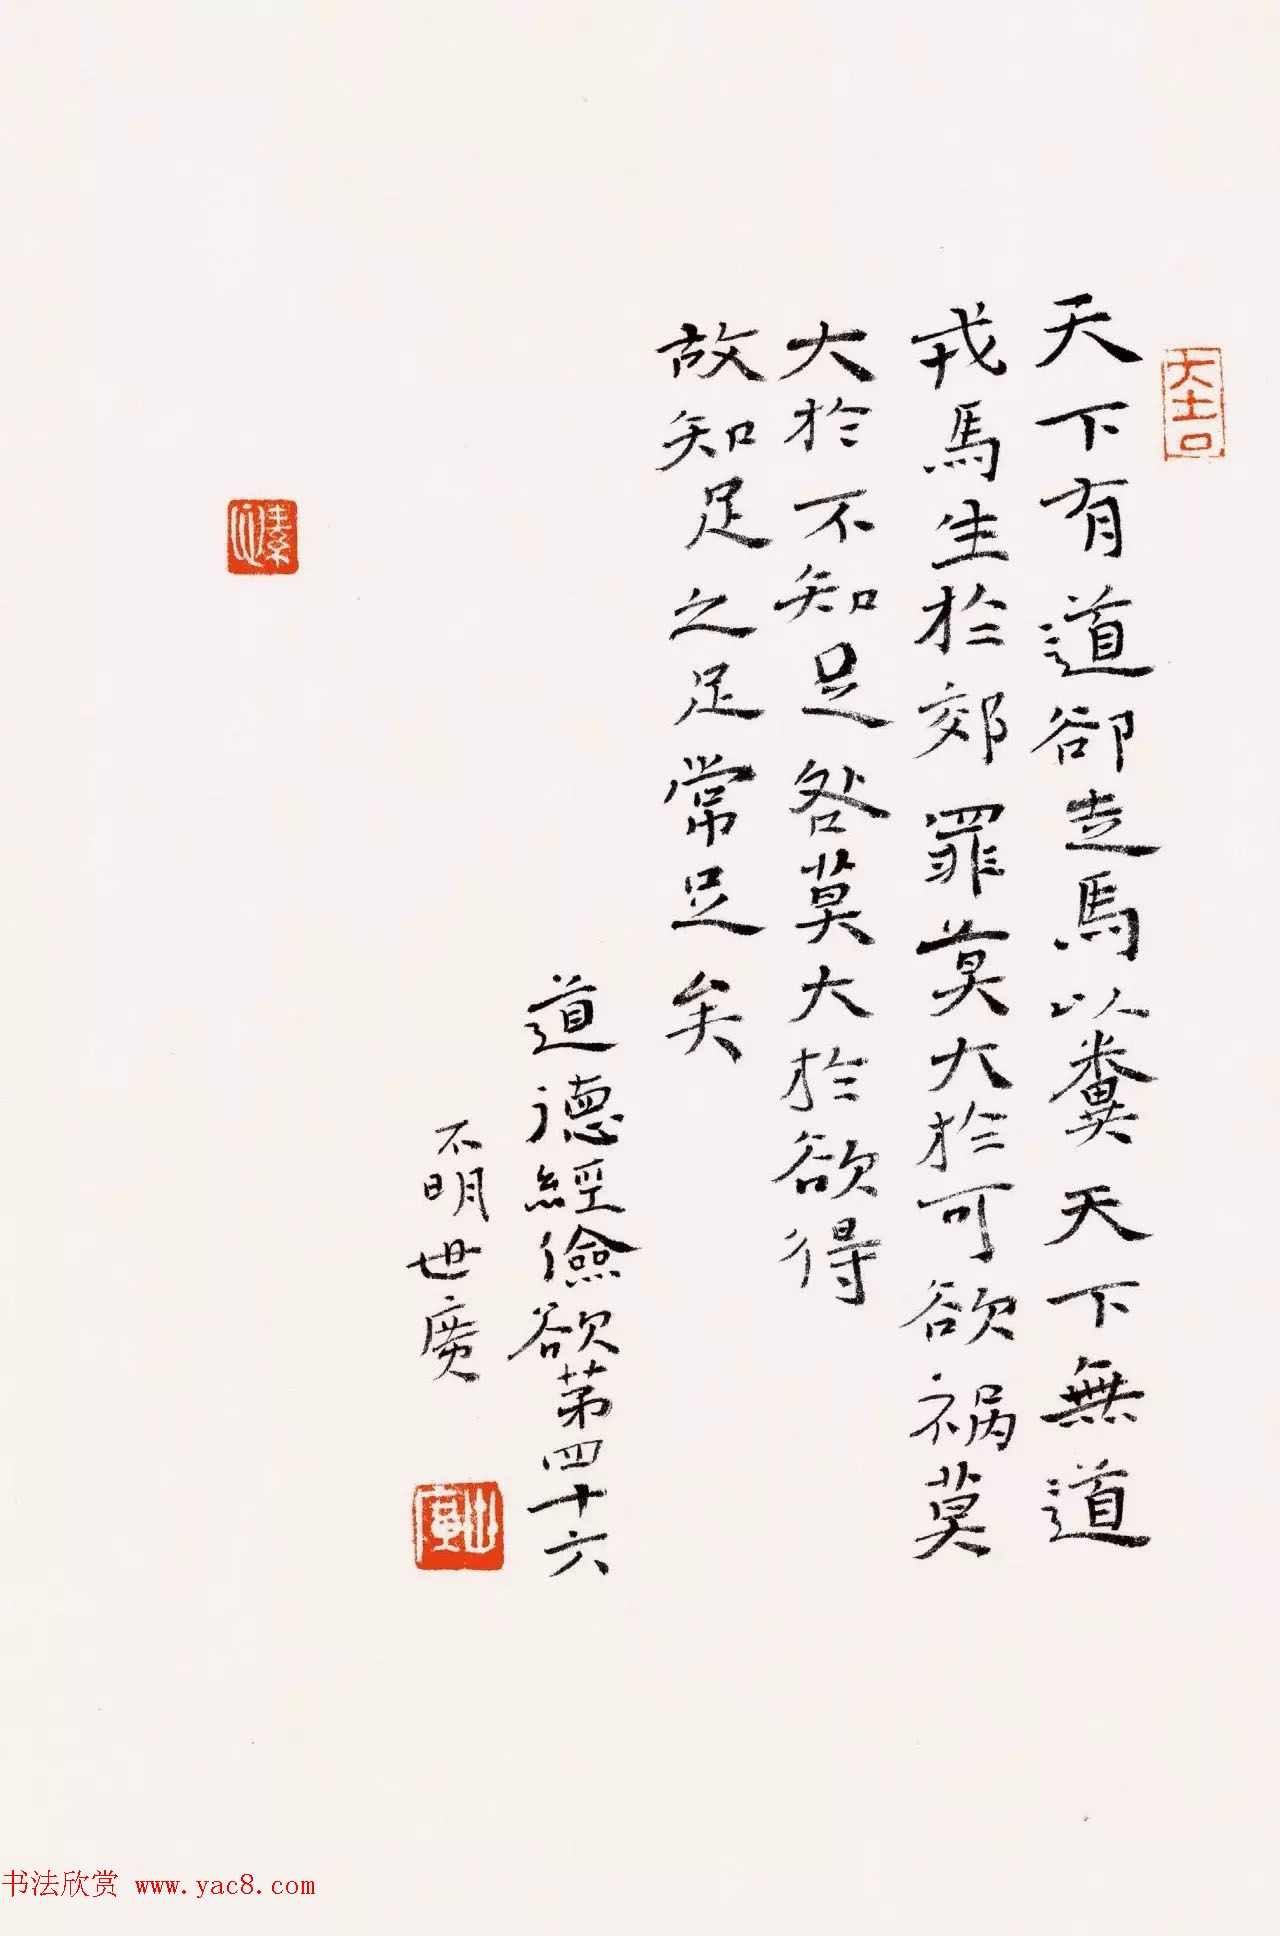 天下有道卻走馬以糞天下無道
戎馬生於郊罪莫大於可欲祸莫
大於不知足咎莫大於欲得
故知足之足常足矣
道德經儉欲第四十六
不明世廣
大吉
素心
世廣
书法欣赏 www.yac8.com